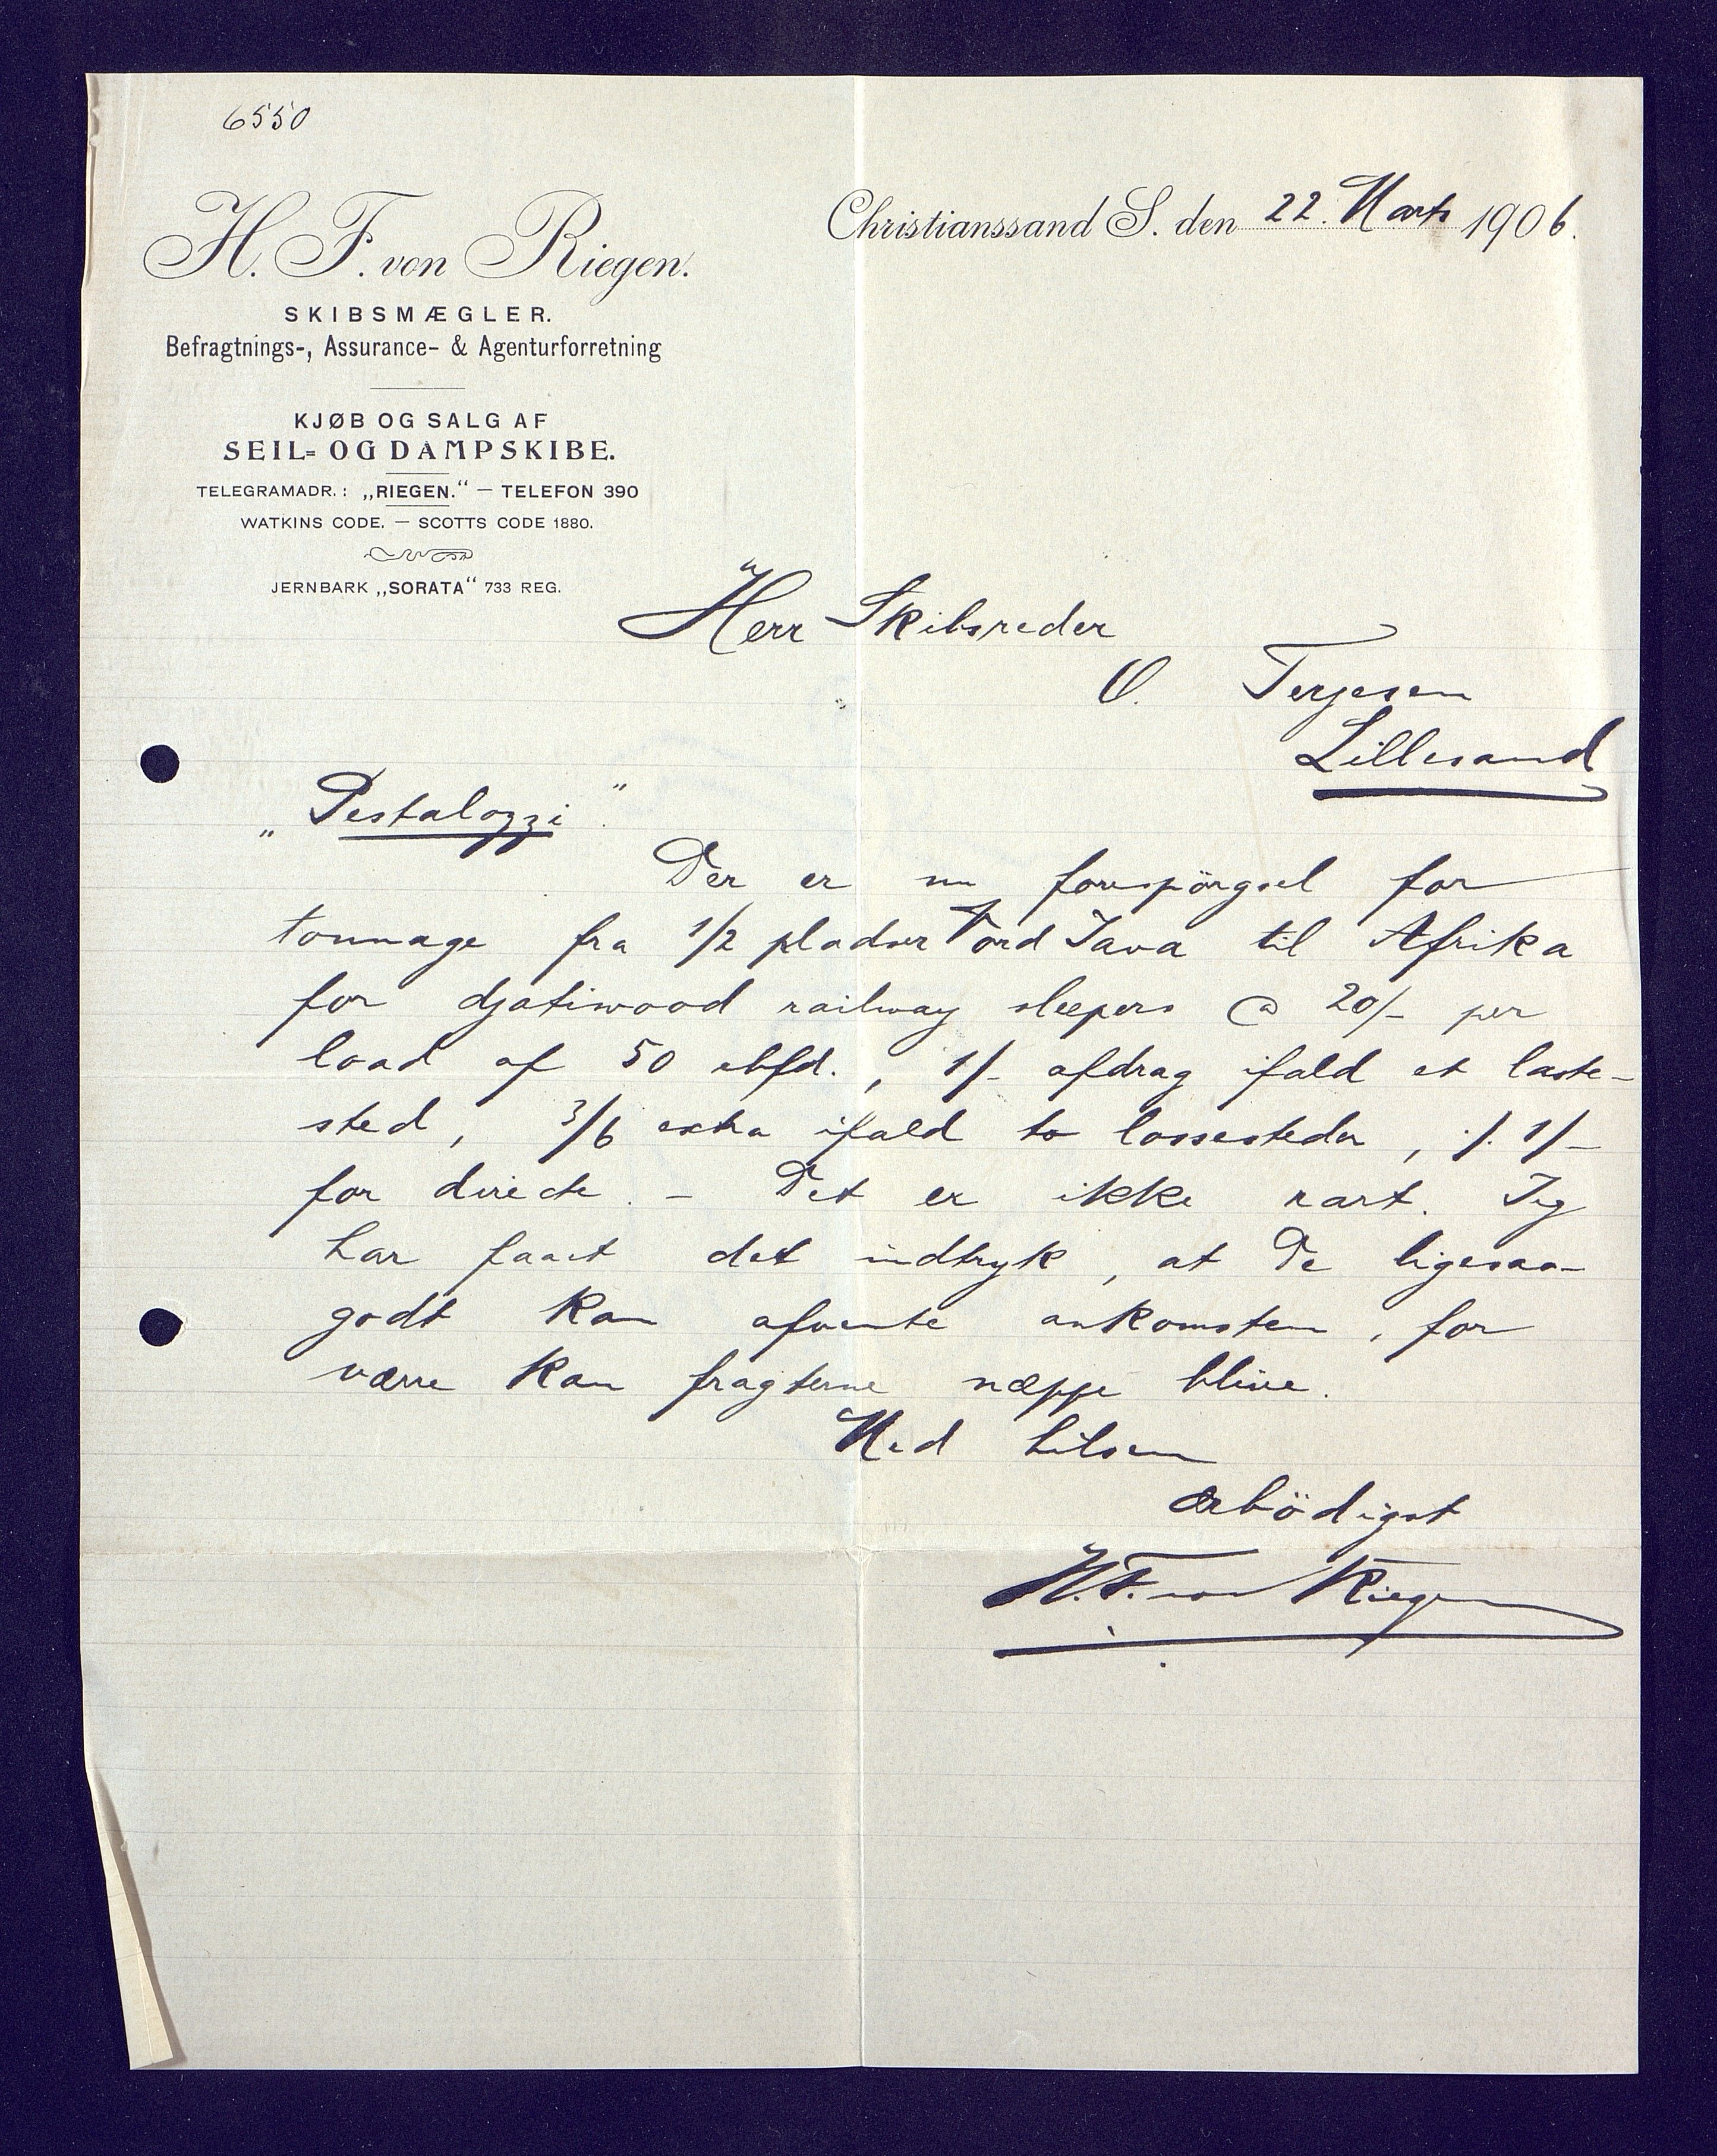 6550
H. F. von Riegen.
SKIBSMÆGLER.
Befragtnings-, Assurance- & Agenturforretning
KJØB OG SALG AF
SEIL= OG DAMPSKIBE.
TELEGRAMADR.: „RIEGEN." — TELEFON 390
WATKINS CODE. — SCOTTS CODE 1880.
JERNBARK „SORATA" 733 REG.
Christianssand S. den 22. Marts 1906.
Herr Skibsreder
O. Terjesen
Lillesand
„Pestalozzi".
Der er nu forespörgsel for
tonnage fra 1/2 pladser Nord Java til Afrika
for djatiwood railway sleepers @ 20/- per
load af 50 cbfd., 1/- afdrag ifald et laste-
sted, 3/6 extra ifald to lossesteder, ./. 1/-
for directe. - Det er ikke rart. Jeg
har faaet det indtryk, at De ligesaa-
godt kan afvente ankomsten, for
værre kan fragterne næppe blive.
Med hilsen
ærbödigst
H. F. von Riegen